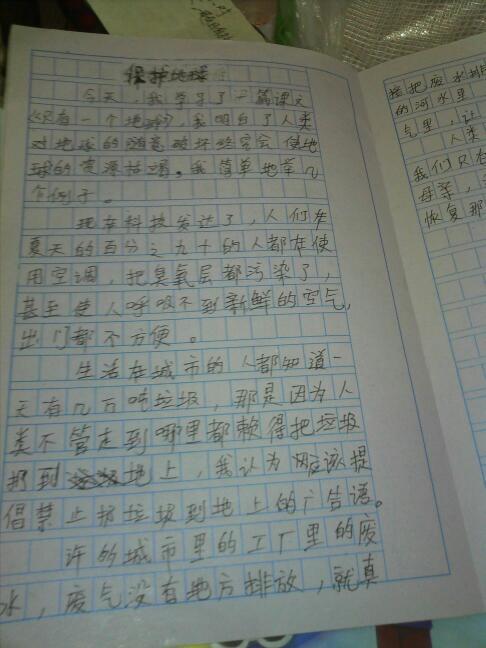 保护地球
今天，我学习了一篇课文
《只有一个地球》，我明白了人类
对地球的随意破坏终究会使地
球的资源枯竭。我简单地举几
个例子。
现在科技发达了，人们在
夏天的百分之九十的人都在使
用空调，把臭氧层都污染了，
甚至使人呼吸不到新鲜的空气，
出门都不方便。
生活在城市的人都知道一
天有几万吨垃圾，那是因为人
类不管走到哪里都懒得把垃圾
扔到地上，我认为应该提
倡禁止扔垃圾到地上的广告语。
许多城市里的工厂里的废
水，废气没有地方排放，就真
接把废水排
的河水里
气里，让
人类
我们只有
母亲，
恢复那